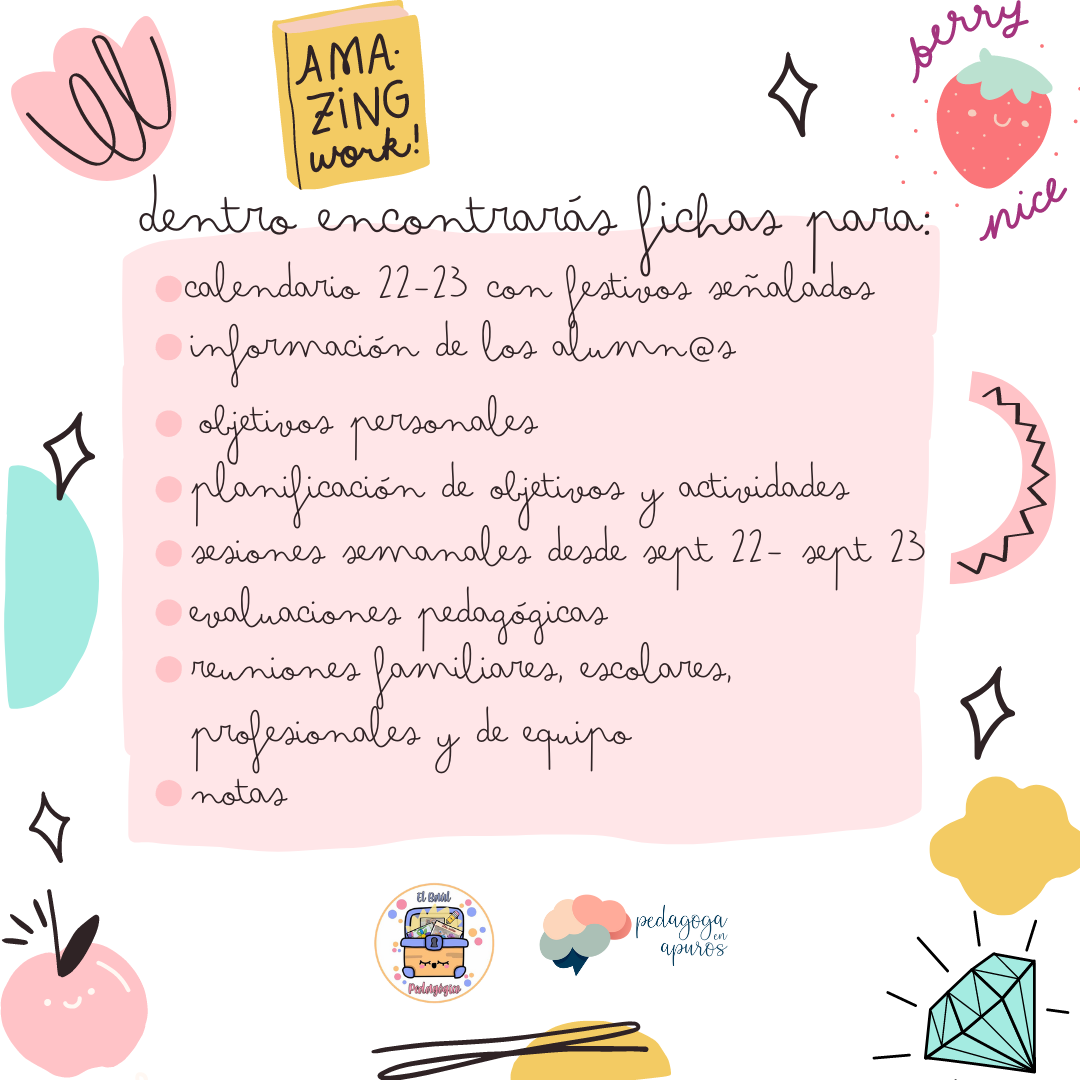 AMA-
ZiNG
work!
berry
nice
dentro encontrarás fichas para:
calendario 22-23 con festivos señalados
información de los alumn@s
objetivos personales
planificación de objetivos y actividades
sesiones semanales desde sept 22- sept 23
evaluaciones pedagógicas
reuniones familiares, escolares,
profesionales y de equipo
notas
El Baúl
Pedagógico
pedagoga
en
apuros